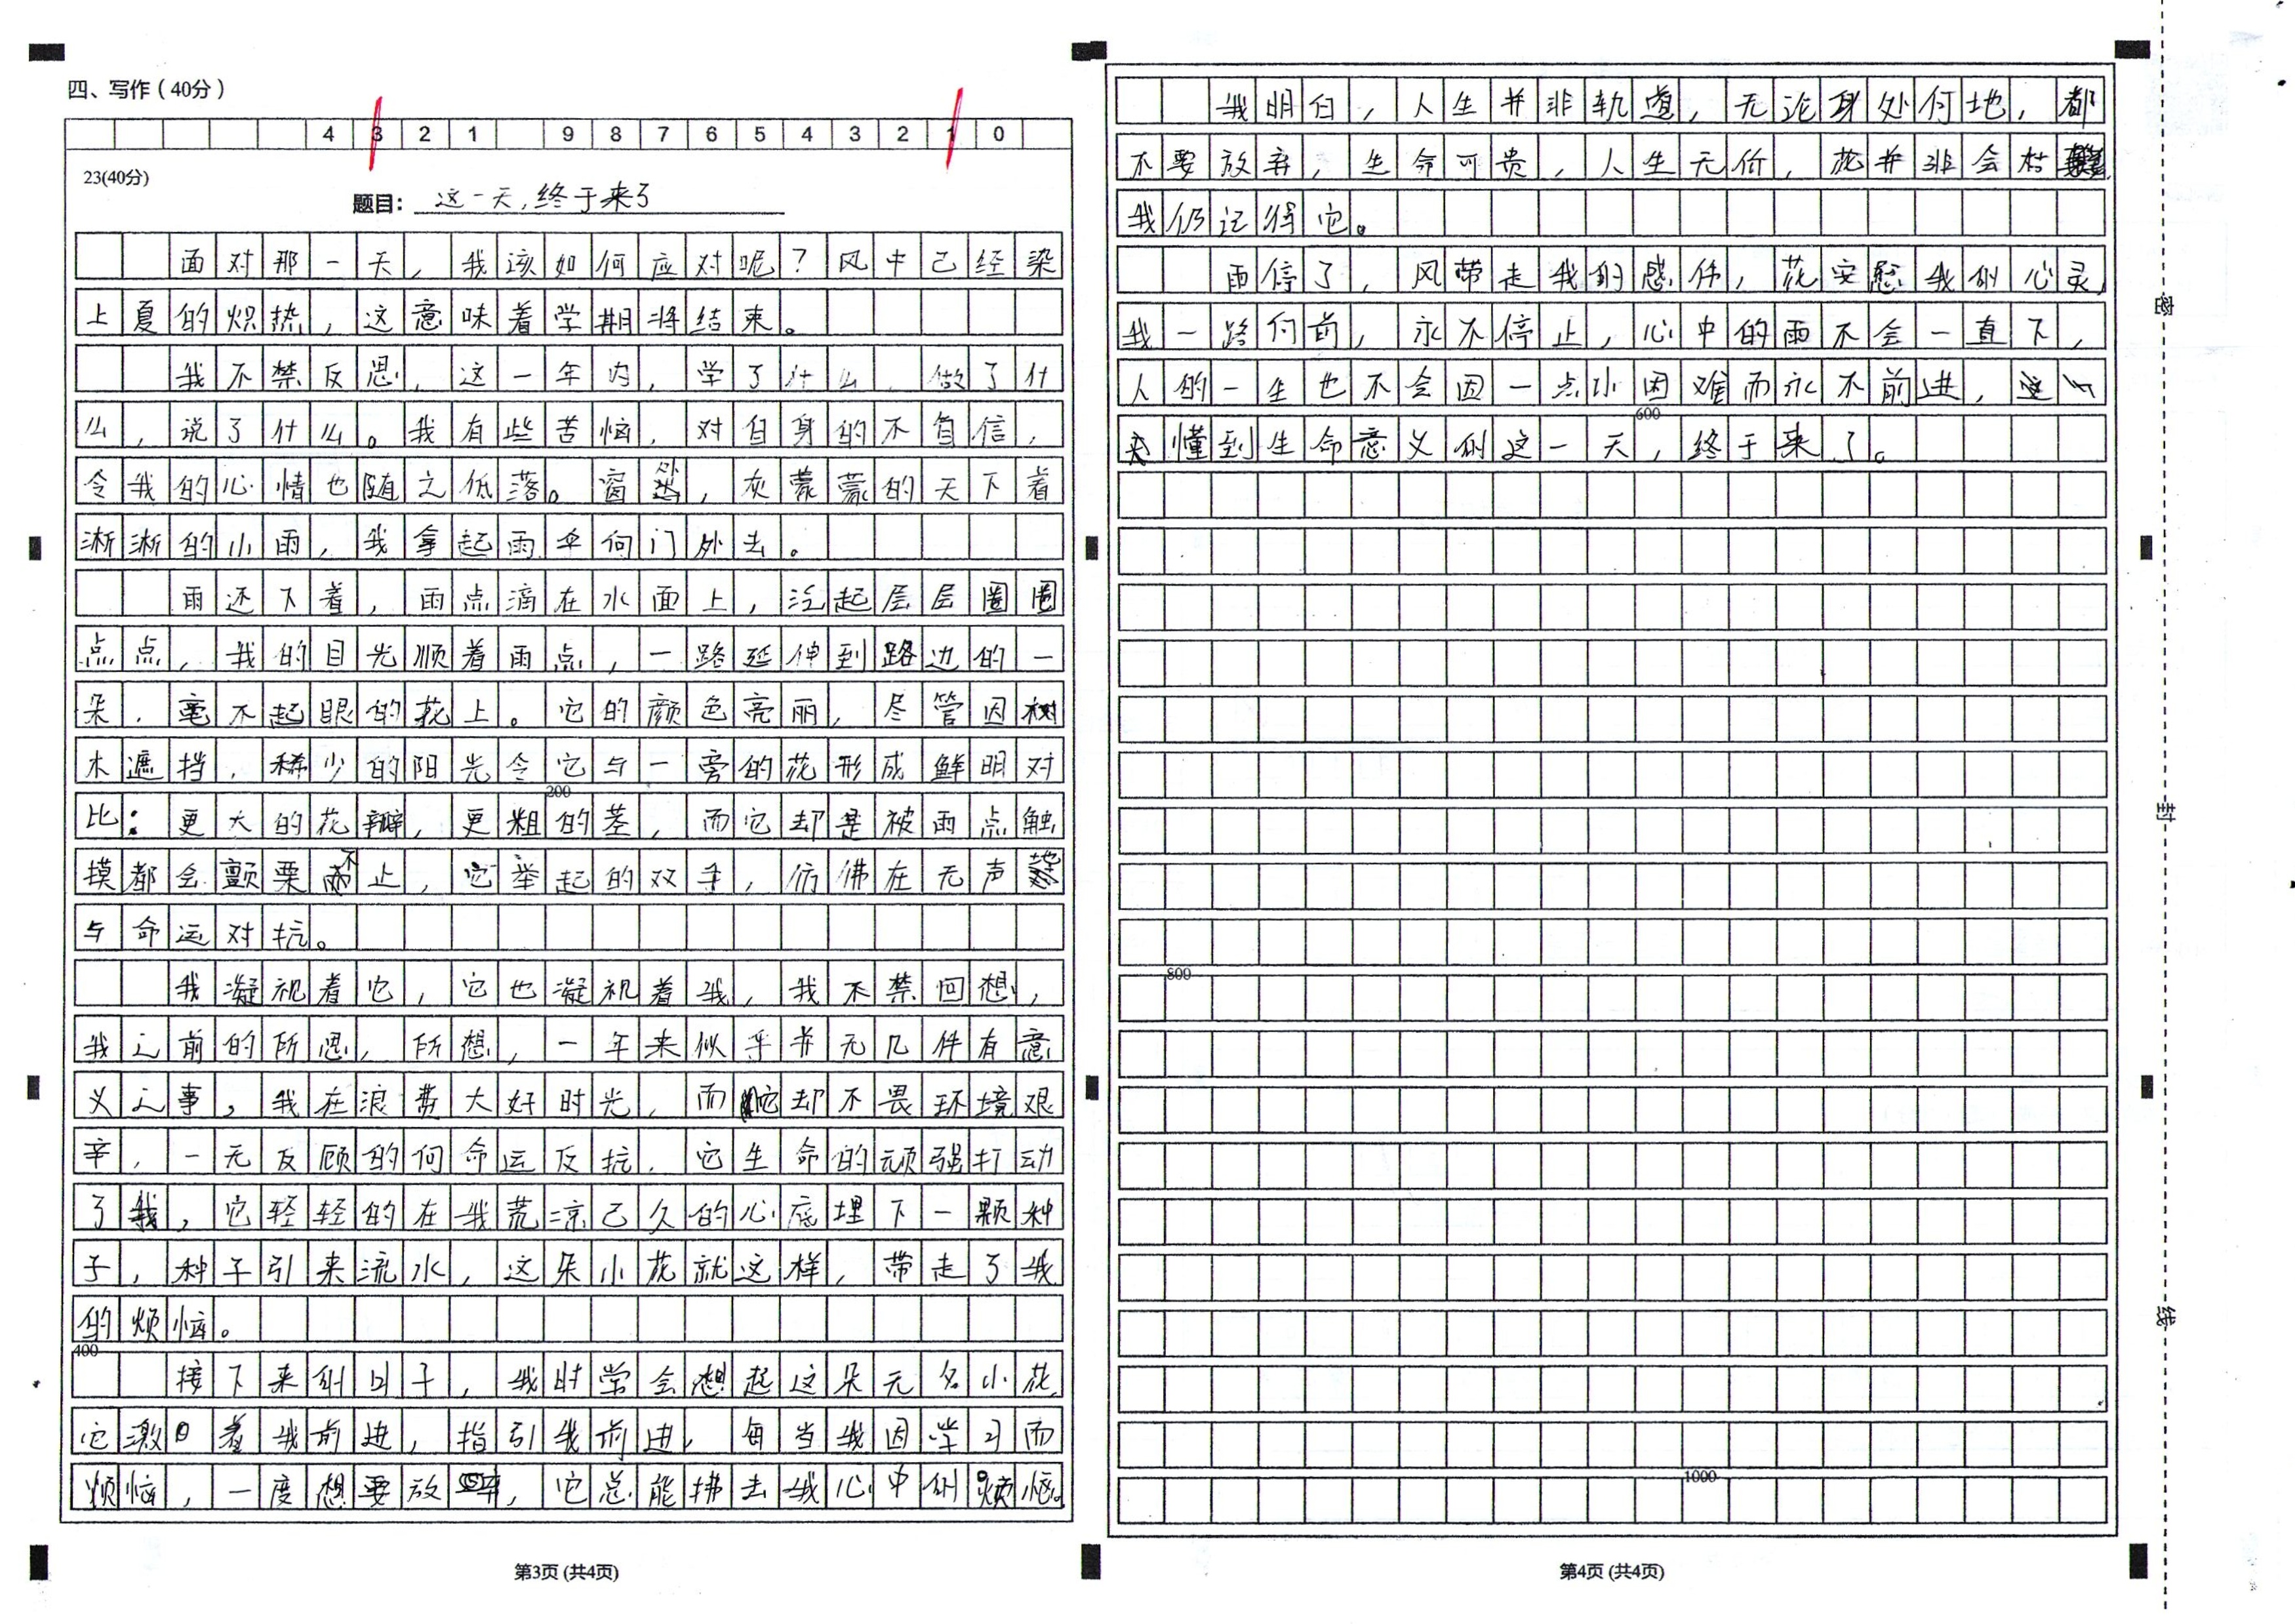 四、写作（40分）
4 3 2 1 9 8 7 6 5 4 3 2 1 0
23(40分)
题目：这一天,终于来了
面对那一天，我该如何应对呢？风中已经染
上夏的炽热，这意味着学期将结束。
我不禁反思，这一年内，学了什么，做了什
么，说了什么。我有些苦恼，对自身的不自信，
令我的心情也随之低落。窗外，灰蒙蒙的天下着
淅淅的小雨，我拿起雨伞向门外去。
雨还下着，雨点滴在水面上，泛起层层圈圈
点点，我的目光顺着雨点，一路延伸到路边的一
朵，毫不起眼的花上。它的颜色亮丽，尽管因树
木遮挡，稀少的阳光令它与一旁的花形成鲜明对
200
比：更大的花瓣，更粗的茎，而它却是被雨点触
摸都会颤栗不止，它举起的双手，仿佛在无声地
与命运对抗。
我凝视着它，它也凝视着我，我不禁回想，
我之前的所思，所想，一年来似乎并无几件有意
义之事，我在浪费大好时光，而它却不畏环境艰
辛，一无反顾的向命运反抗，它生命的顽强打动
了我，它轻轻的在我荒凉已久的心底埋下一颗种
子，种子引来流水，这朵小花就这样，带走了我
的烦恼。
400
接下来的日子，我时常会想起这朵无名小花
它激励着我前进，指引我前进，每当我因学习而
烦恼，一度想要放弃，它总能拂去我心中的烦恼。
第3页 (共4页)
我明白，人生并非轨道，无论身处何地，都
不要放弃，生命可贵，人生无价，花并非会枯
我仍记得它。
雨停了，风带走我的感伤，花安慰我的心灵，
我一路向前，永不停止，心中的雨不会一直下，
人的一生也不会因一点小困难而永不前进，这一
600
天懂到生命意义的这一天，终于来了。
800
1000
第4页 (共4页)
密
封
线